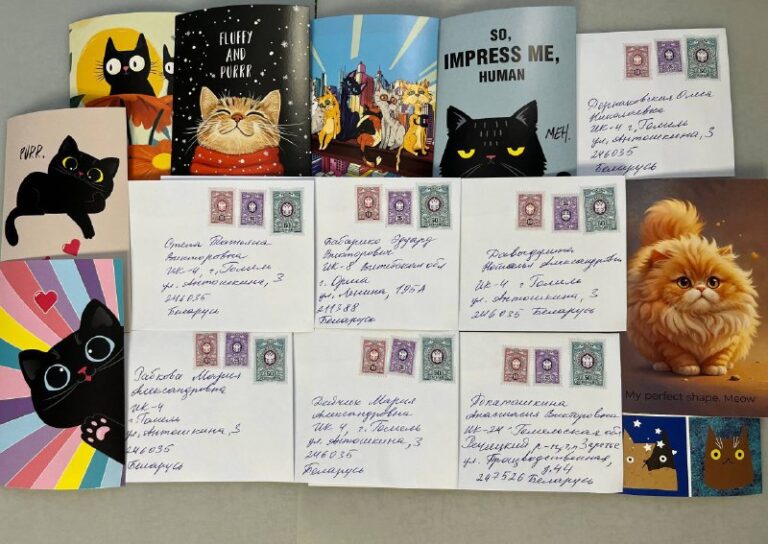 FLUFFY
AND
PURRR
SO,
IMPRESS ME,
HUMAN
MEH.
PURR.
Николаевна
ИК-4 г. Гомель
ул. Антошкина, 3
246035
Беларусь
Татьяна
Викторовна
ИК-4, г. Гомель
ул. Антошкина, 3
246035
Беларусь
Бабарико Эдуард
Викторович
ИК-8 Витебская обл
г. Орша
ул. Ленина, 195А
211388
Беларусь
Наталья Александровна
ИК-4 г. Гомель
ул. Антошкина, 3
246035 Беларусь
My perfect shape. Meow
Рабкова Мария
Александровна
ИК-4
г. Гомель
ул. Антошкина, 3
246035
Беларусь
Мария
Александровна
ИК 4, г. Гомель
ул. Антошкина, 3
246035
Беларусь
Анастасия Викторовна
ИК-24 Гомельская обл
Речицкий р-н, Заречье
ул. Производственная,
д. 44
247526 Беларусь